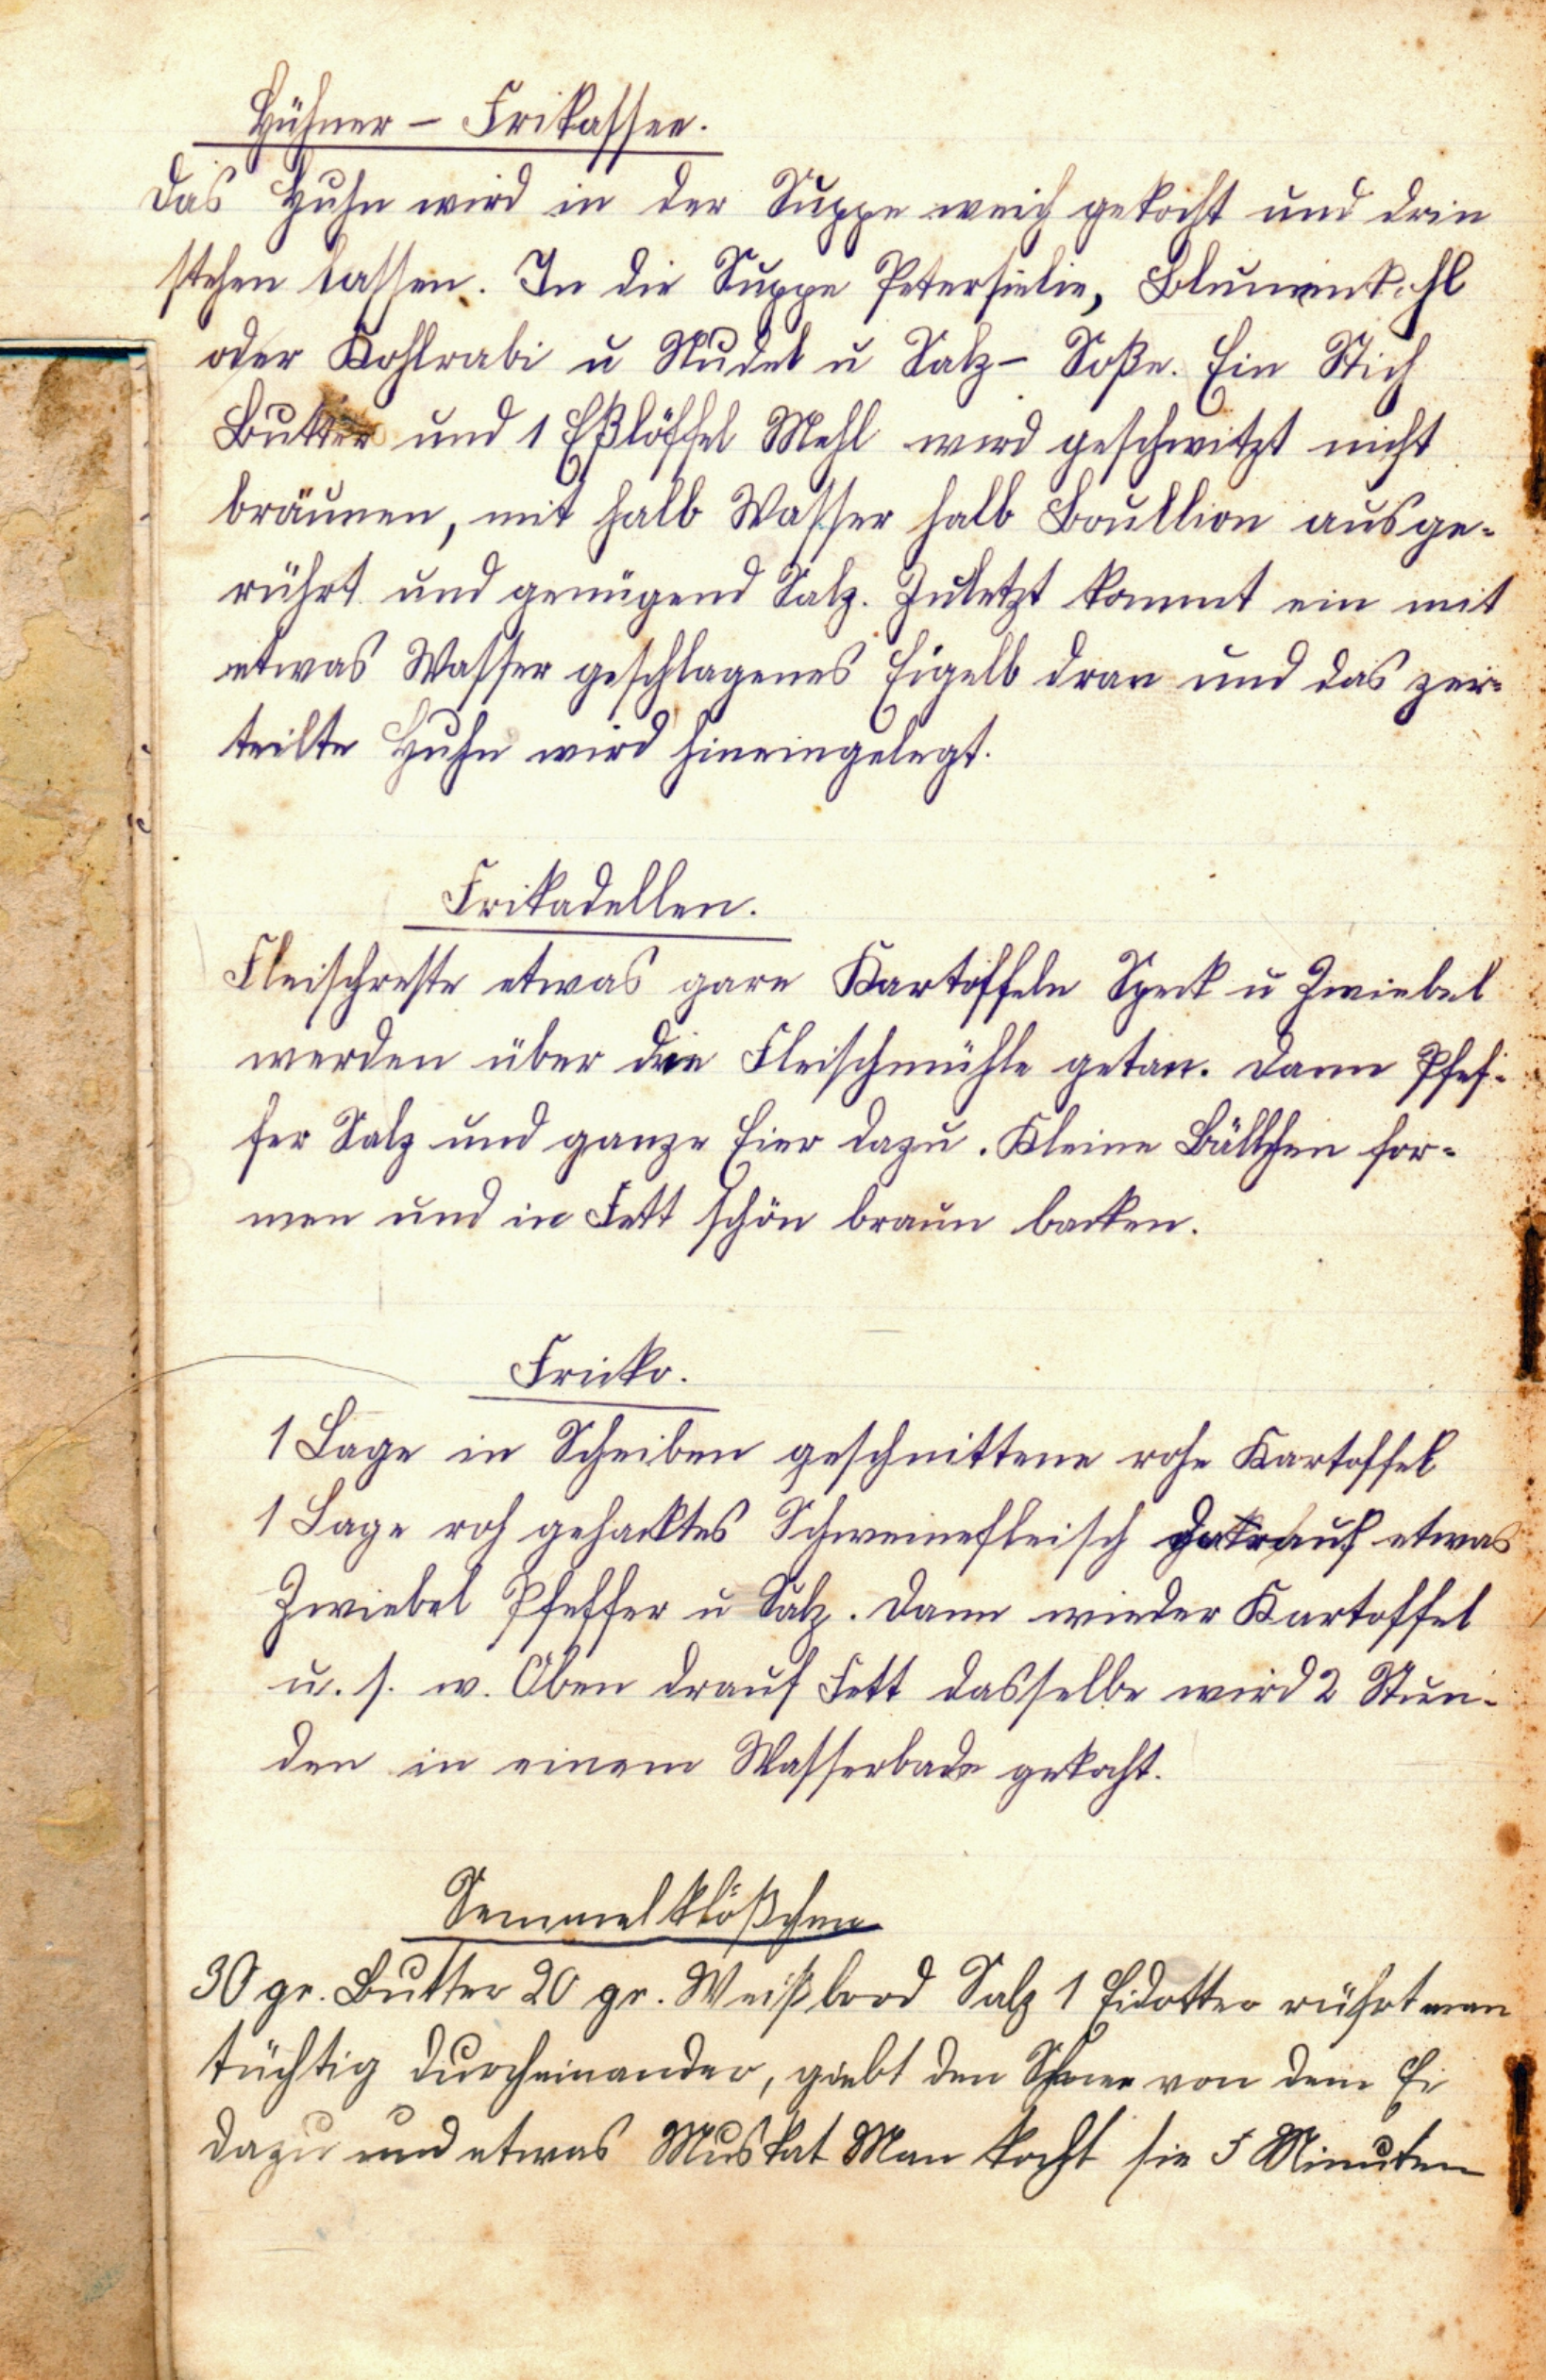 Hühner - Frikassee.
Das Huhn wird in der Suppe weich gekocht und drin
stehen lassen. In die Suppe Petersielie, Blumenkohl
oder Kohlrabi u Nudel u Salz - Soße. Ein Stich
Butter und 1 Eßlöffel Mehl wird geschwitzt nicht
bräunen, mit halb Wasser halb Boullion ausge-
rührt und genügend Salz. Zuletzt kommt ein mit
etwas Wasser geschlagenes Eigelb dran und das zer-
teilte Huhn wird hineingelegt.
Frikadellen.
Fleischreste etwas gare Kartoffeln Speck u Zwiebel
werden über die Fleischmühle getan. Dann Pfef-
fer Salz und ganze Eier dazu. Kleine Bällchen for-
men und in Fett schön braun backen.
Fricko.
1 Lage in Scheiben geschnittene rohe Kartoffel
1 Lage roh gehacktes Schweinefleisch darauf etwas
Zwiebel Pfeffer u Salz. Dann wieder Kartoffel
u. s. w. Oben drauf Fett dasselbe wird 2 Stun-
den in einem Wasserbade gekocht.
Semmelklößchen
30 gr. Butter 20 gr. Weißbrod Salz 1 Eidotter rührt man
tüchtig durcheinander, giebt den Schnee von dem Ei
dazu und etwas Muskat Man kocht sie 5 Minuten